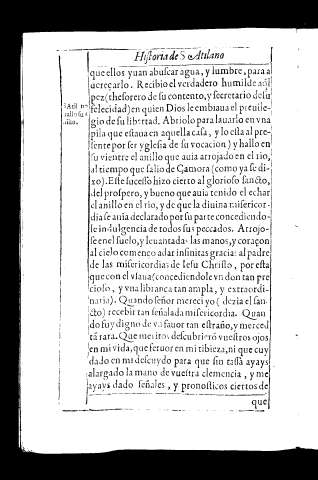 Historia de S. Atilano
que ellos yuan abuscar agua, y lumbre, para a
dereçarlo. Recibio el verdadero humilde aql
pez (thesorero de su contento, y secretario de su
felecidad) en quien Dios le embiaua el preuile-
gio de su libertad. Abriolo para lauarlo en vna
pila que estaua en aquella casa, y lo esta al pre-
sente por ser yglesia de su vocacion) y hallo en
su vientre el anillo que auia arrojado en el rio,
al tiempo que salio de Çamora (como ya se di-
xo). Este sucesso hizo cierto al glorioso sancto,
del prospero, y bueno que auia tenido el echar
el anillo en el rio, y de que la diuina misericor-
dia se auia declarado por su parte concediendo-
le indulgencia de todos sus peccados. Arrojo-
se en el suelo, y leuantadas las manos, y coraçon
al cielo començo a dar infinitas gracias al padre
de las misericordias de Iesu Christo, por esta
que con el vsaua (concediendole vn don tan pre
cioso, y vna librança tan ampla, y extraordi-
naria). Quando señor mereci yo (dezia el san-
cto) recebir tan señalada misericordia. Quan
do fuy digno de vn fauor tan estraño, y merced
tã rara. Que meritos descubrierõ vuestros ojos
en mi vida, que feruor en mi tibieza, ni que cuy
dado en mi descuydo para que sin tassa ayays
alargado la mano de vuestra clemencia, y me
ayays dado señales, y pronosticos ciertos de
que
S. Atil no
rallo su a
nillo.